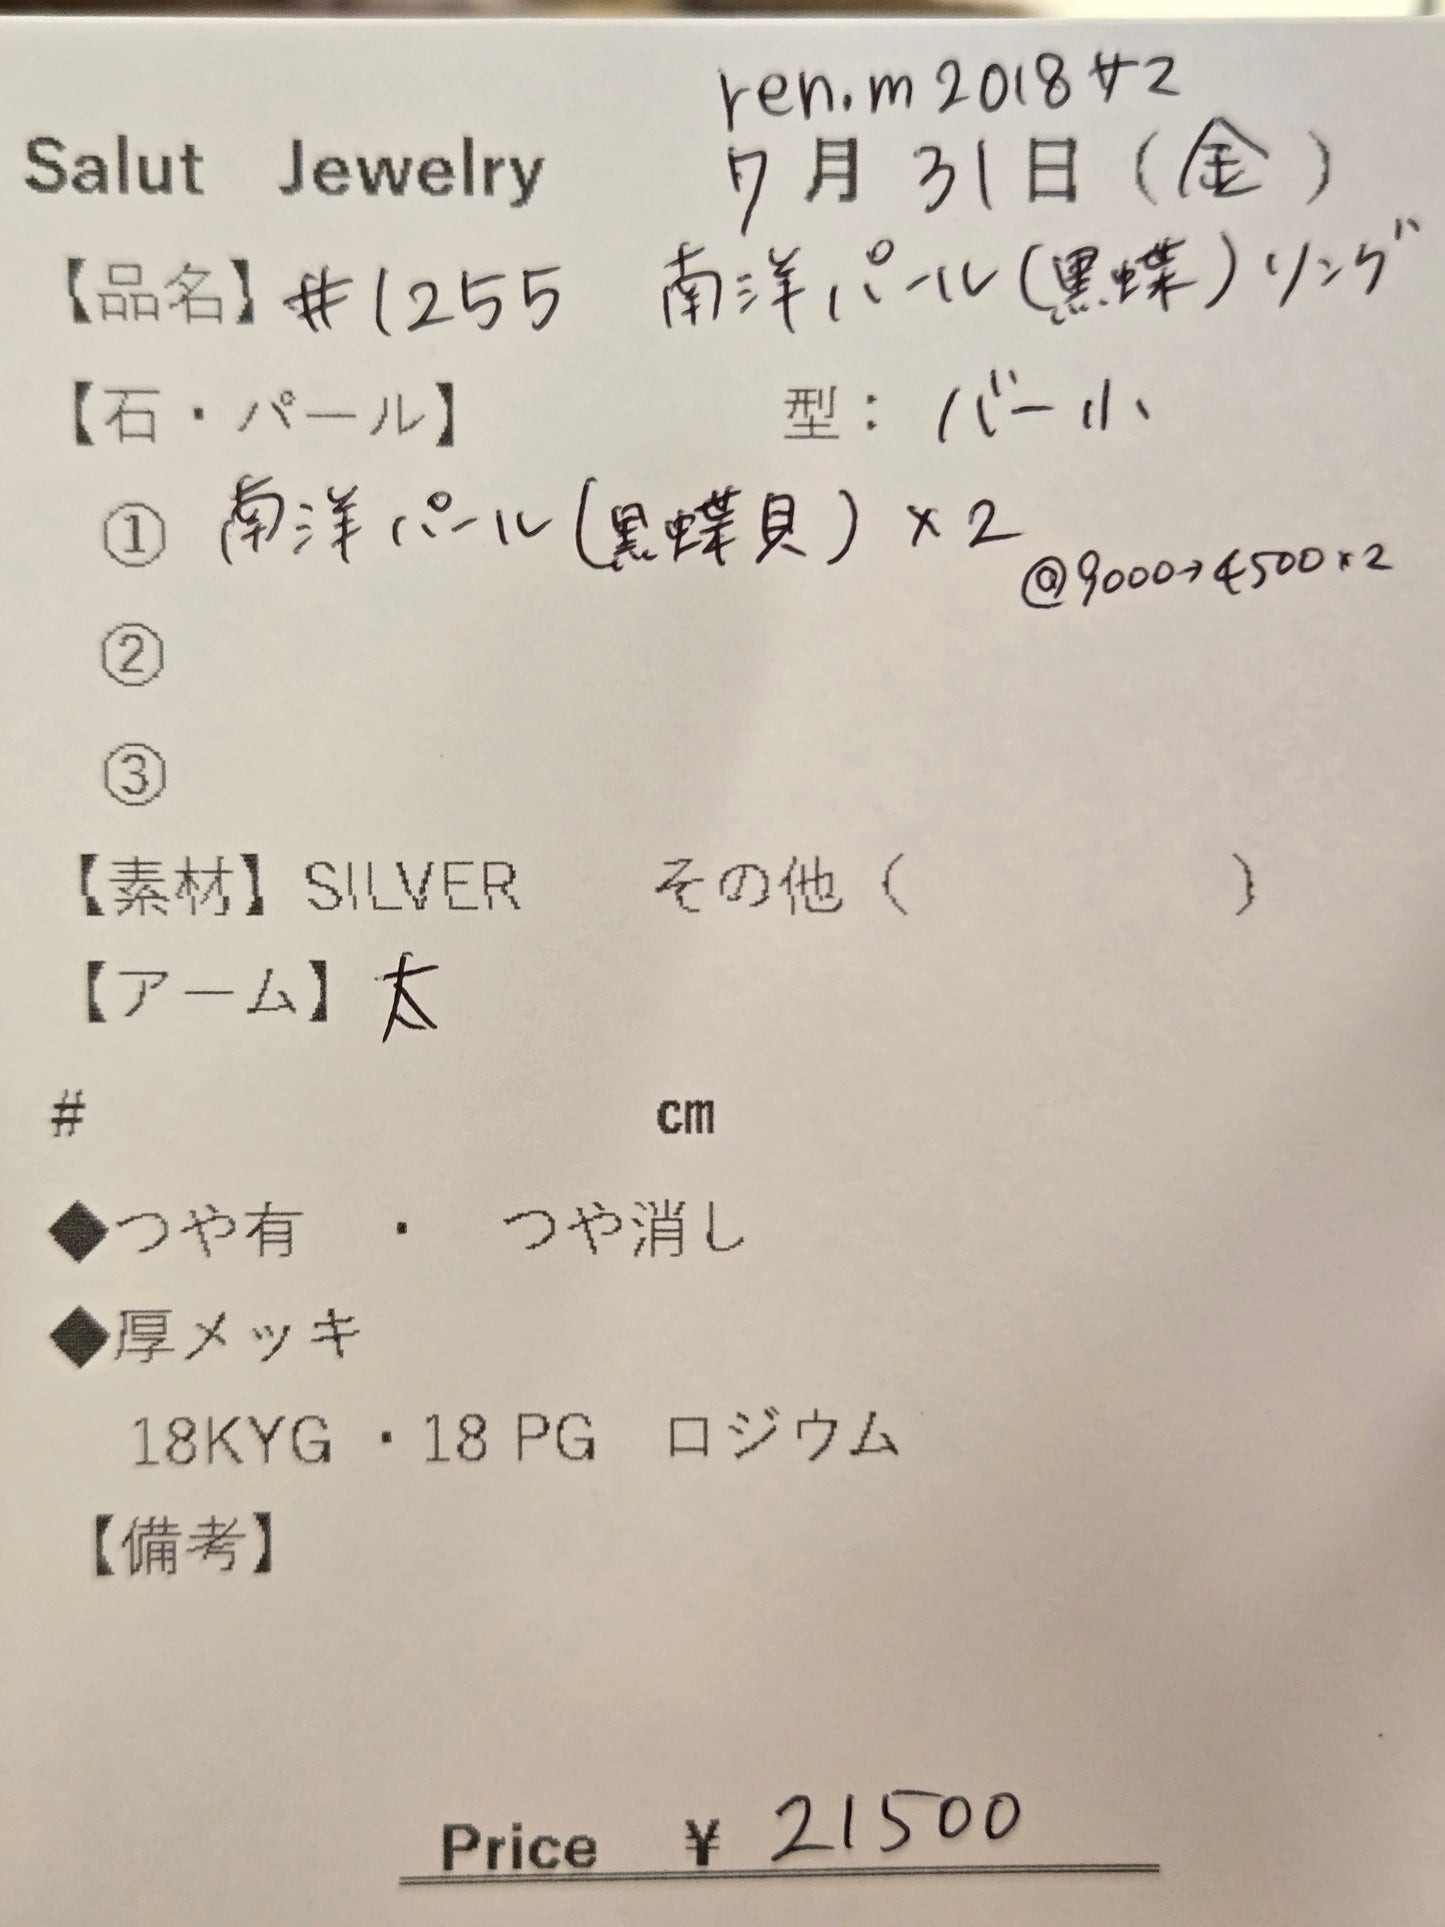 ren.m2018サマ
Salut Jewelry 7月31日(金)
【品名】#1255 南洋パール(黒蝶)リング
【石・パール】 型: バー小
① 南洋パール(黒蝶貝)×2
@9000→4500×2
②
③
【素材】SILVER その他( )
【アーム】太
# cm
◆つや有 ・ つや消し
◆厚メッキ
18KYG ・18 PG ロジウム
【備考】
Price ¥ 21500